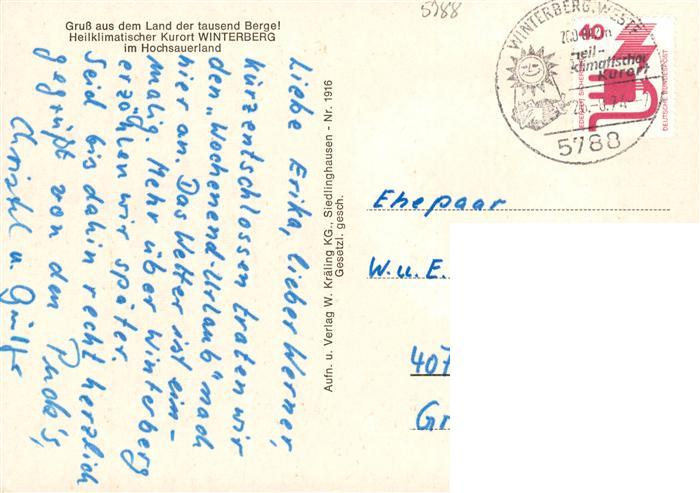 Gruß aus dem Land der tausend Berge!
Heilklimatischer Kurort WINTERBERG
im Hochsauerland
5788
WINTERBERG, WESTF
heil-
klimatischer
Kurort
5788
40
JEDERZEIT SICHERHEIT
DEUTSCHE BUNDESPOST
Liebe Erika, lieber Werner,
kurzentschlossen traten wir
den "Wochenend-Urlaub" nach
hier an. Das Wetter ist ein-
malig. Mehr über Winterberg
erzählen wir später.
Seid bis dahin recht herzlich
gegrüßt von den
Christel u.
Aufn. u. Verlag W. Kräling KG., Siedlinghausen - Nr. 1916
Gesetzl. gesch.
Ehepaar
W. u. E.
407
Gr